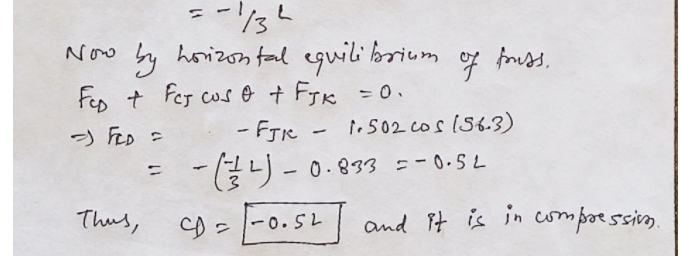 = -1/3 L
Now by horizontal equilibrium of truss.
FCD + FCJ cos θ + FJK = 0.
=> FCD = - FJK - 1.502 cos (56.3)
= - (-1/3 L) - 0.833 = -0.5 L
Thus, CD = -0.5L and it is in compression.